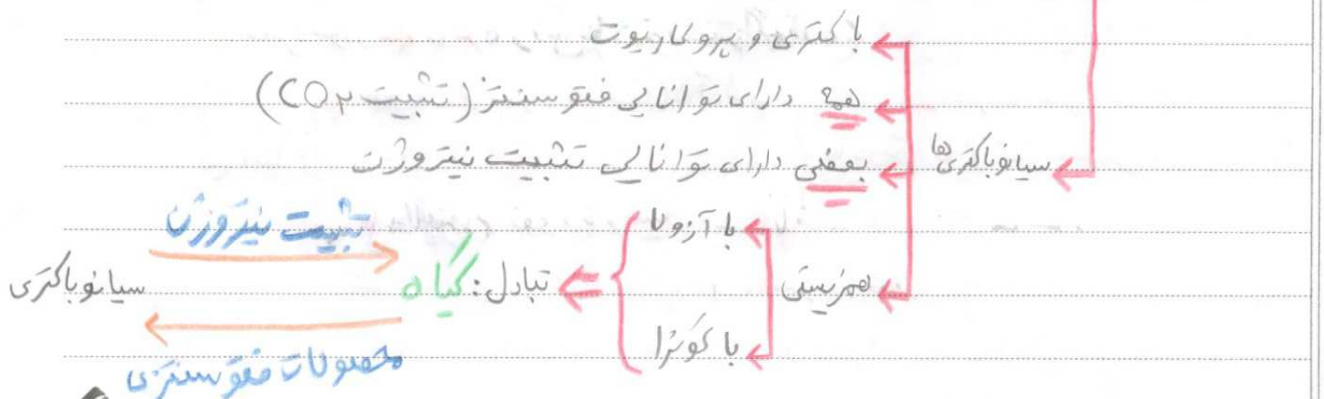 باکتری و پروکاریوت
همه دارای توانایی فتوسنتز (تثبیت CO۲)
سیانوباکتری‌ها
بعضی دارای توانایی تثبیت نیتروژن
همزیستی
با آزولا
با گونرا
تبادل: گیاه
تثبیت نیتروژن
سیانوباکتری
محصولات فتوسنتزی